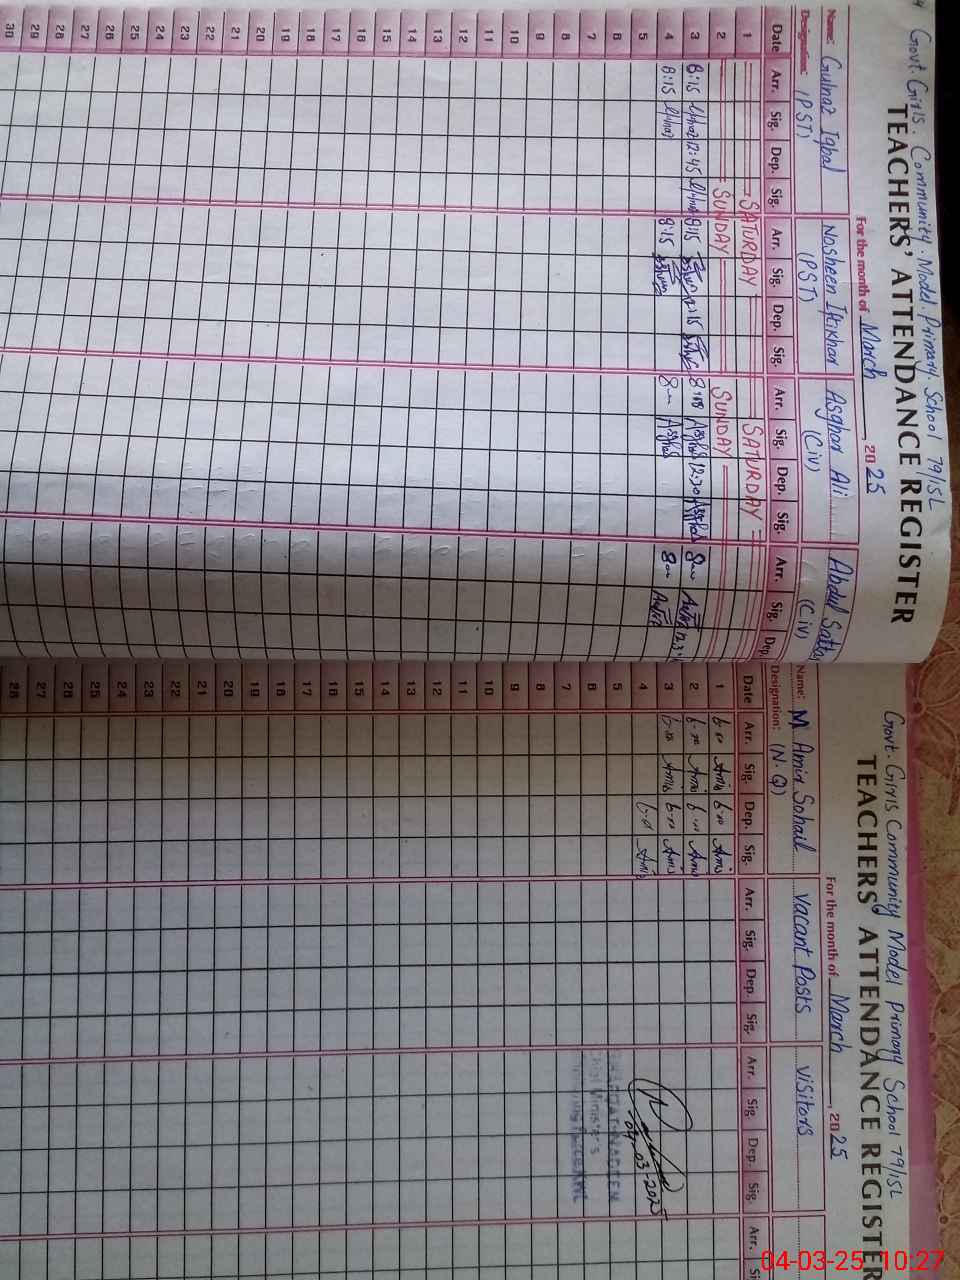 Govt. Girls. Community. Model. Primary. School 79/15L
TEACHERS' ATTENDANCE REGISTER
For the month of March, 2025
Name: Gulnaz Iqbal Nosheen Iftikhar Asghar Ali Abdul Sattar
Designation: (PST) (PST) (Civ) (Civ)
Date Arr. Sig. Dep. Sig. Arr. Sig. Dep. Sig. Arr. Sig. Dep. Sig. Arr. Sig. Dep.
1 SATURDAY SATURDAY
2 SUNDAY SUNDAY
3 8:15 12:45 8:15 12:15 8:00 Asghar 12:30 Asghar 8:00
4 8:15 8:15 8:00 Asghar 8:00
5
6
7
8
9
10
11
12
13
14
15
16
17
18
19
20
21
22
23
24
25
26
27
28
29
30
Govt. Girls Community Model Primary School 79/15L
TEACHERS' ATTENDANCE REGISTER
For the month of March, 2025
Name: M Amin Sohail Vacant Posts Visitors
Designation: (N.Q)
Date Arr. Sig. Dep. Sig. Arr. Sig. Dep. Sig. Arr. Sig. Dep. Sig. Arr.
1 6:00 Amin 6:00 Amin
2 6:00 Amin 6:00 Amin
3 6:00 Amin 6:00 Amin
4 6:00 Amin
04-03-2025
5
6
Chief Minister's
7
8
9
10
11
12
13
14
15
16
17
18
19
20
21
22
23
24
25
26
27
28
04-03-25 10:27